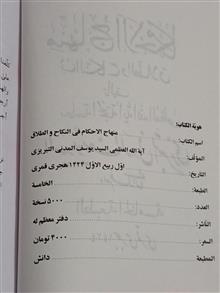 هوية الكتاب:
اسم الكتاب: منهاج الاحكام فى النكاح و الطلاق
المؤلف: آية الله العظمى السيد يوسف المدنى التبريزى
التاريخ: اوّل ربيع الاوّل ۱۴۲۴ هجرى قمرى
الطبعة: الخامسة
العدد: ۵۰۰۰ نسخة
الناشر: دفتر معظم له
السعر: ۴۰۰۰ تومان
المطبعة دانش